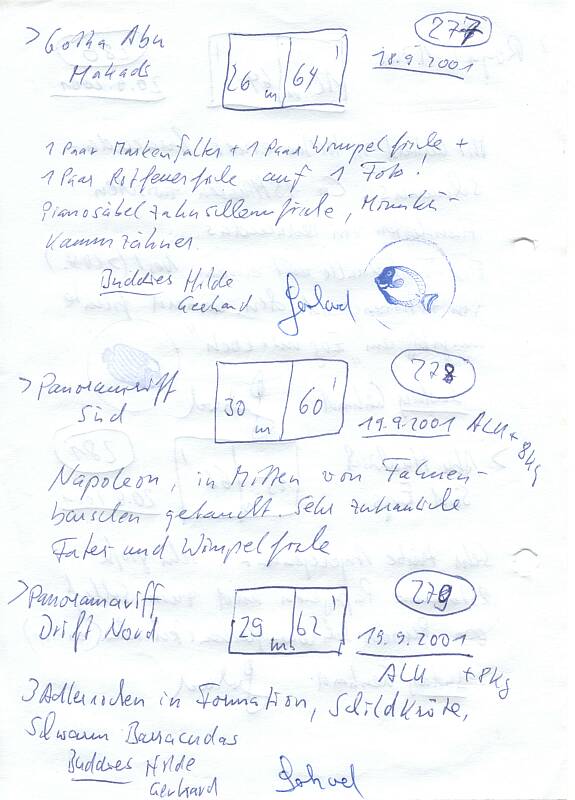 > Gotha Abu
Makads
26 m 64'
277
18.9.2001
1 Paar Maskenfalter + 1 Paar Wimpelfische +
1 Paar Rotfeuerfische auf 1 Foto!
Pianosäbelzahnschleimfische, Mimikri-
Kammzähner.
Buddies Hilde
Gerhard
Gerhard
> Panoramariff
Süd
30 m 60'
278
19.9.2001 ALU + 8kg
Napoleon, in Mitten von Fahnen-
barschen getaucht. Sehr zutrauliche
Falter und Wimpelfische
> Panoramariff
Drift Nord
29 m 62'
279
19.9.2001
ALU + 8kg
3 Adlerrochen in Formation, Schildkröte,
Schwarm Barracudas
Buddies Hilde
Gerhard
Gerhard